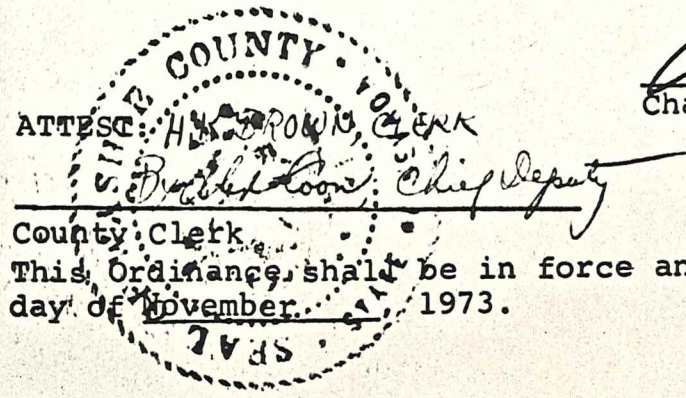 COUNTY
SEAL
Cha
ATTEST: H.K. BROWN, CLERK
By Alex Coon, Chief Deputy
County Clerk
This Ordinance shall be in force an
day of November, 1973.